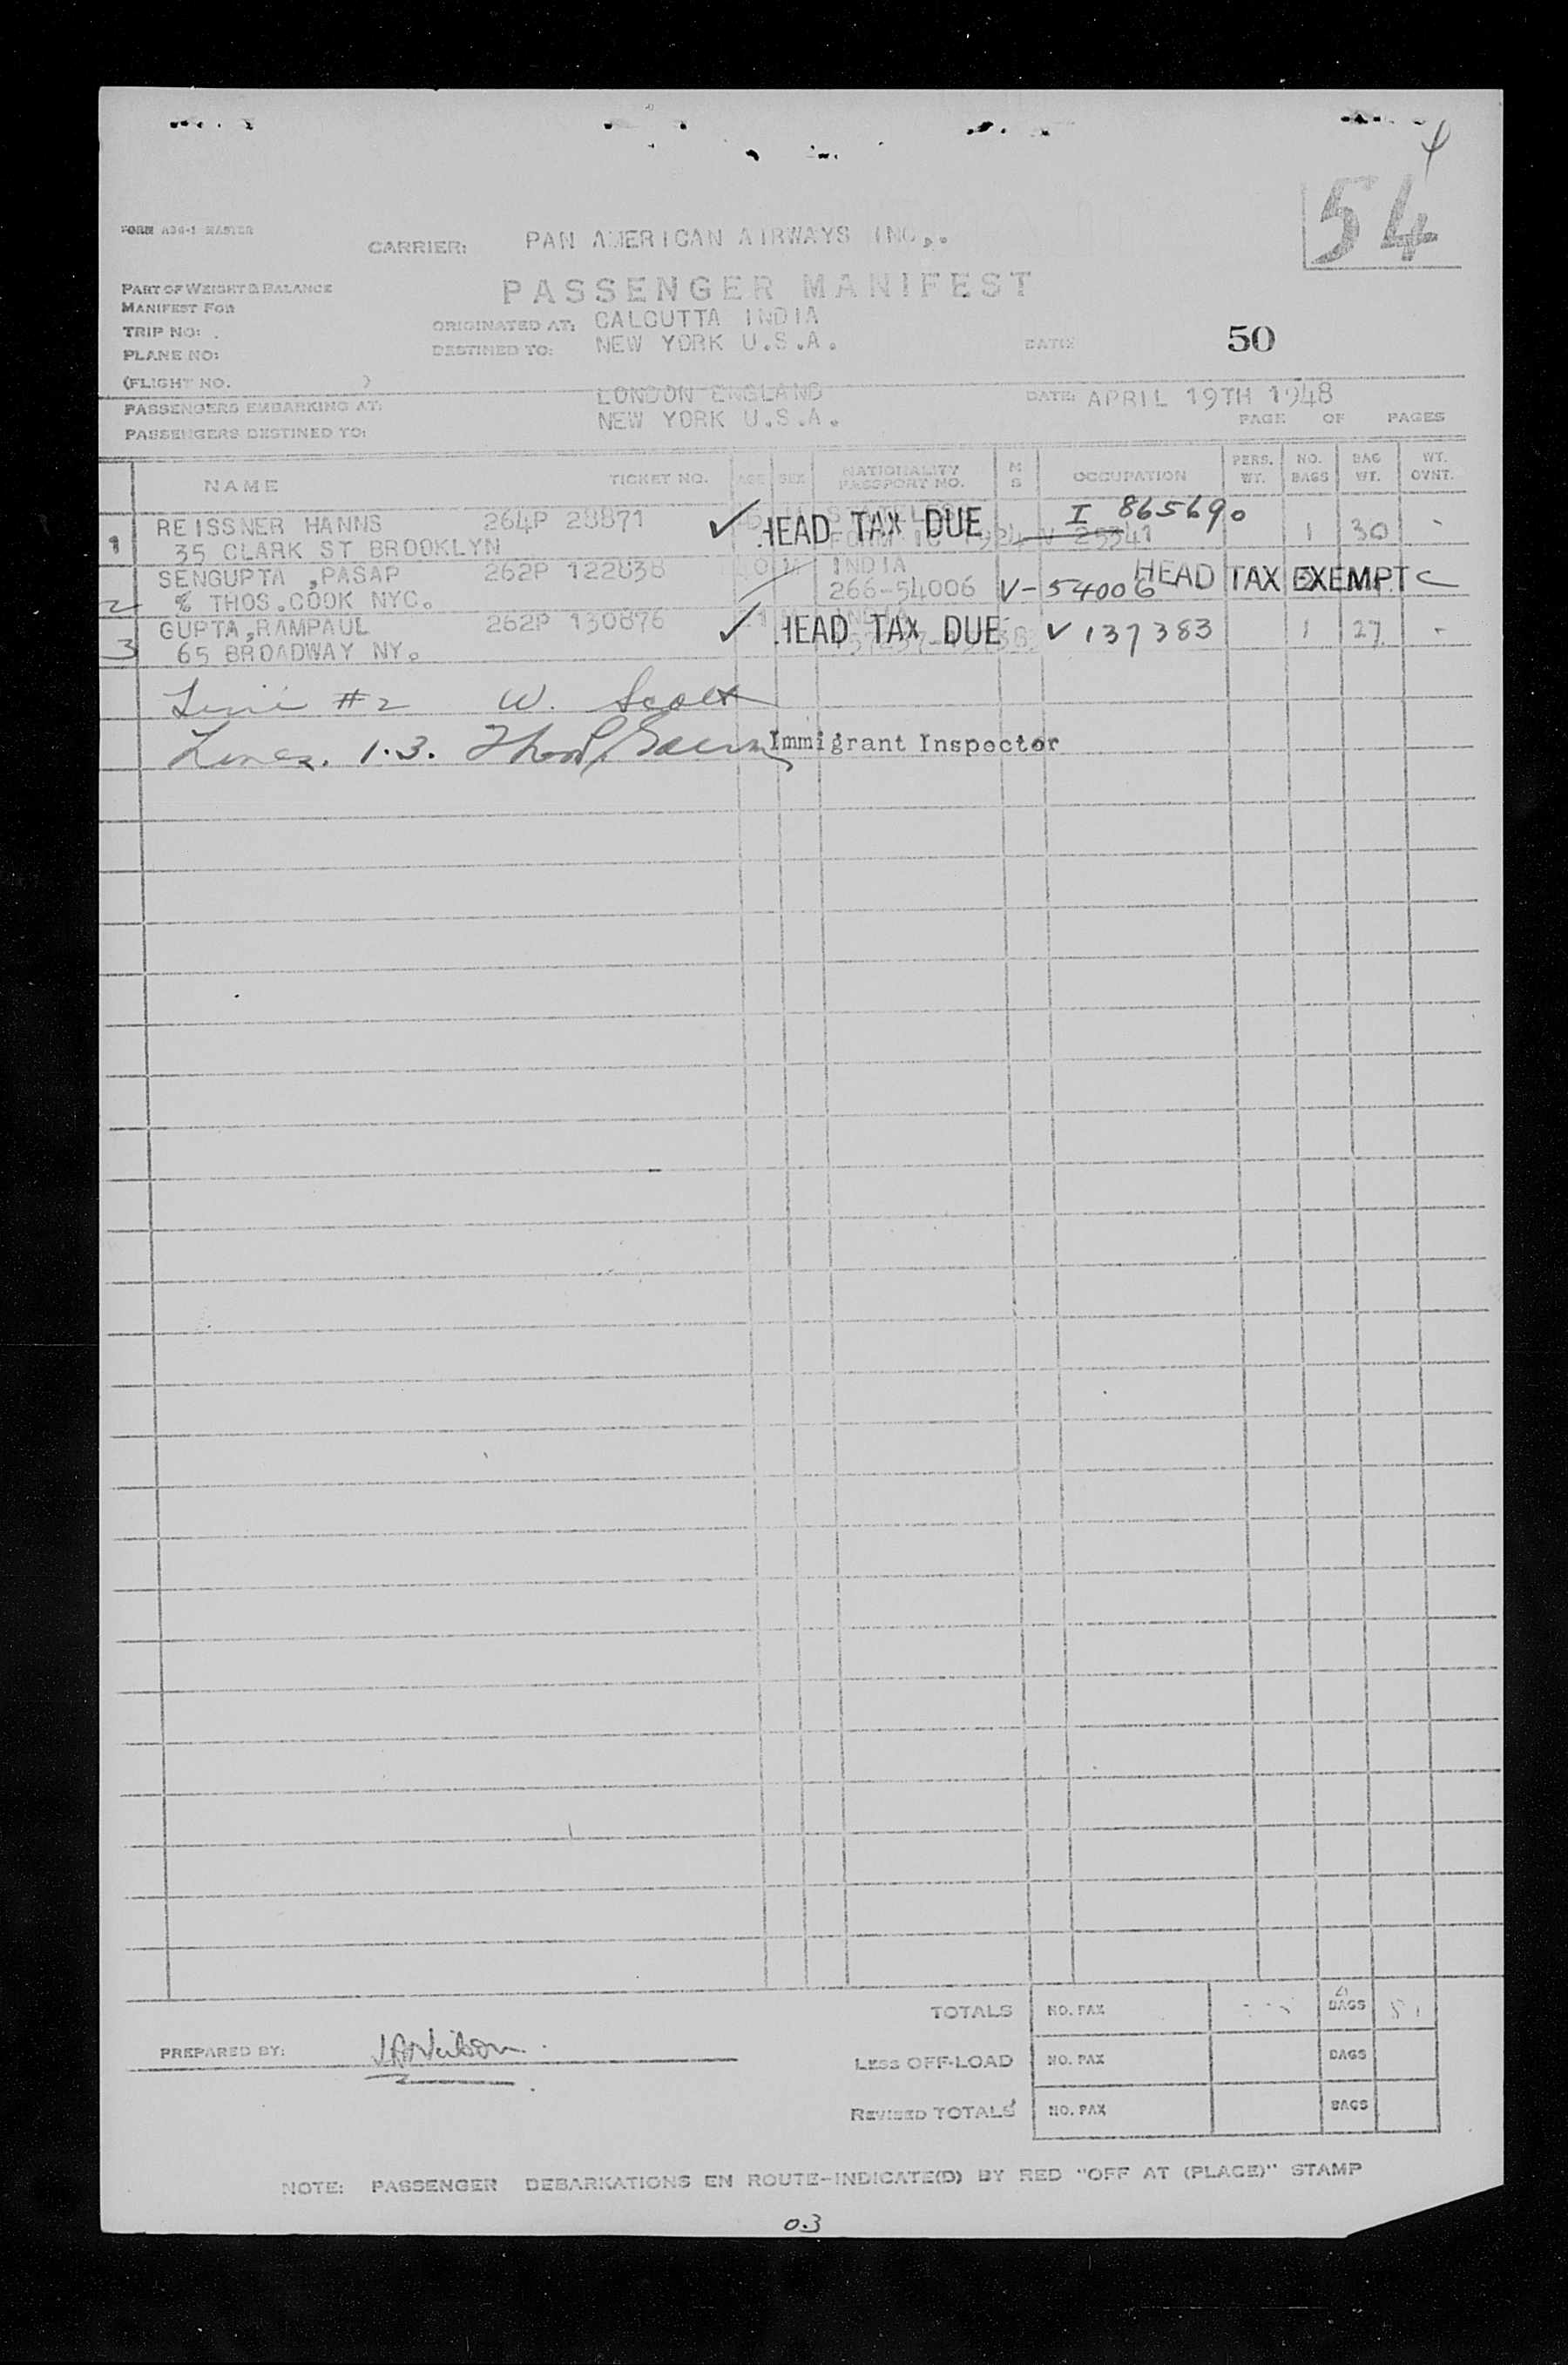 54
FORM A36-1 MASTER
CARRIER: PAN AMERICAN AIRWAYS INC.
PASSENGER MANIFEST
PART OF WEIGHT & BALANCE
MANIFEST FOR
TRIP NO:
PLANE NO:
(FLIGHT NO. )
ORIGINATED AT: CALCUTTA INDIA
DESTINED TO: NEW YORK U.S.A. DATE: 50
PASSENGERS EMBARKING AT: LONDON ENGLAND DATE: APRIL 19TH 1948
PASSENGERS DESTINED TO: NEW YORK U.S.A. PAGE OF PAGES
NAME TICKET NO. AGE SEX NATIONALITY PASSPORT NO. M S OCCUPATION PERS. WT. NO. BAGS BAG WT. WT. OVNT.
1 REISSNER HANNS 264P 28871 ✓ HEAD TAX DUE I 865690 1 30 -
35 CLARK ST BROOKLYN
SENGUPTA ,PASAP 262P 122838 40 M INDIA HEAD TAX EXEMPT
2 % THOS.COOK NYC. 266-54006 V-54006
GUPTA,RAMPAUL 262P 130876 ✓ HEAD TAX DUE V 137383 1 27 -
3 65 BROADWAY NY.
Line #2 W. Scott
Lines. 1.3. Immigrant Inspector
TOTALS NO. PAX BAGS
PREPARED BY:
LESS OFF-LOAD NO. PAX BAGS
REVISED TOTALS NO. PAX BAGS
NOTE: PASSENGER DEBARKATIONS EN ROUTE-INDICATE(D) BY RED "OFF AT (PLACE)" STAMP
0.3